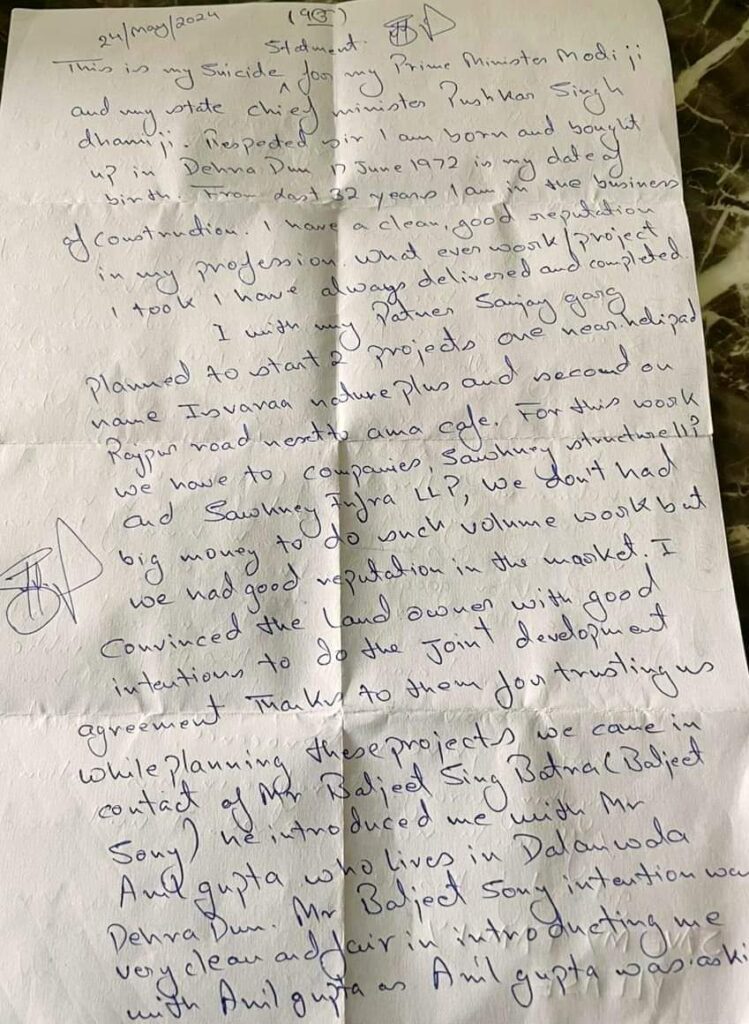 24/May/2024
(ੴ)
Statment.
This is my Suicide ^ for my Prime Minister Modi ji
and my state chief minister Pushkar Singh
dhami ji. Respected sir I am born and bought
up in Dehra Dun 17 June 1972 is my date of
birth. From last 32 years I am in the business
of construction. I have a clean, good reputation
in my profession. what ever work/project
I took I have always delivered and completed.
I with my Patner Sanjay garg
planned to start 2 projects one near helipad
name Isvaraa nature plus and second on
Rajpur road nextto ama cafe. For this work
we have to companies, Sawhney structure
and Sawhney Infra LLP, we don't had
big money to do such volume work but
we had good reputation in the market. I
Convinced the Land owner with good
intentions to do the joint development
agreement Thanks to them for trusting us
while planning these projects we came in
contact of Mr Baljeet Sing Batra (Baljeet
Sony) he introduced me with Mr
Anil gupta who lives in Dalanwda
Dehra Dun. Mr Baljeet Sony intention wa
very clean and fair in introducting me
with Anil gupta as Anil gupta was aski